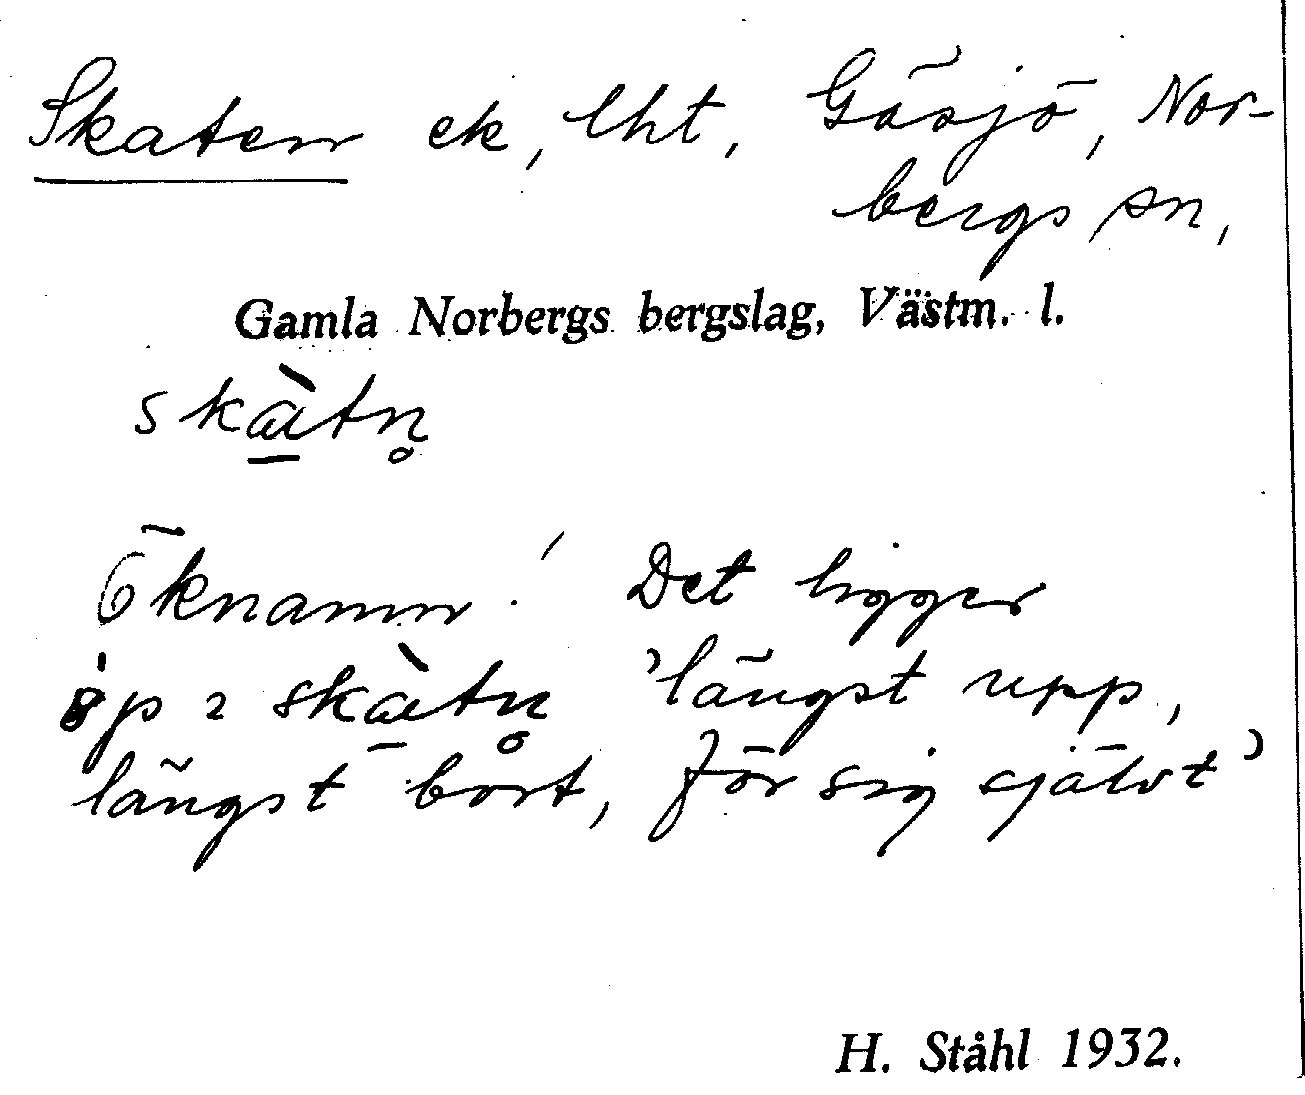 Skaten ek, lht, Gäsjö, Nor-
bergs sn,
Gamla Norbergs bergslag, Västm. l.
skàtn̥
Öknamn! Det ligger
öp 2 skàtn̥ 'längst upp,
längst bort, för sig självt'
H. Ståhl 1932.